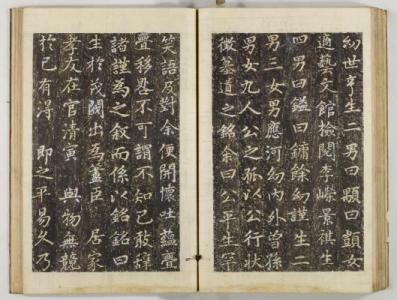 幼世亨生二男曰顒曰顗女
適藝文館檢閱李嶸景祺生
四男曰鎰曰鏞餘幼謹生二
男三女男應河幼內外曾孫
男女九人公之孤以公行狀
徵墓道之銘余曰公平生罕
笑語及對余便開懷吐蘊亹
亹移晷不可謂不知己敢辭
諸謹為之叙而係以銘銘曰
生於茂閥出為藎臣居家
孝友在官清寅與物無競
於己有得即之平易久乃